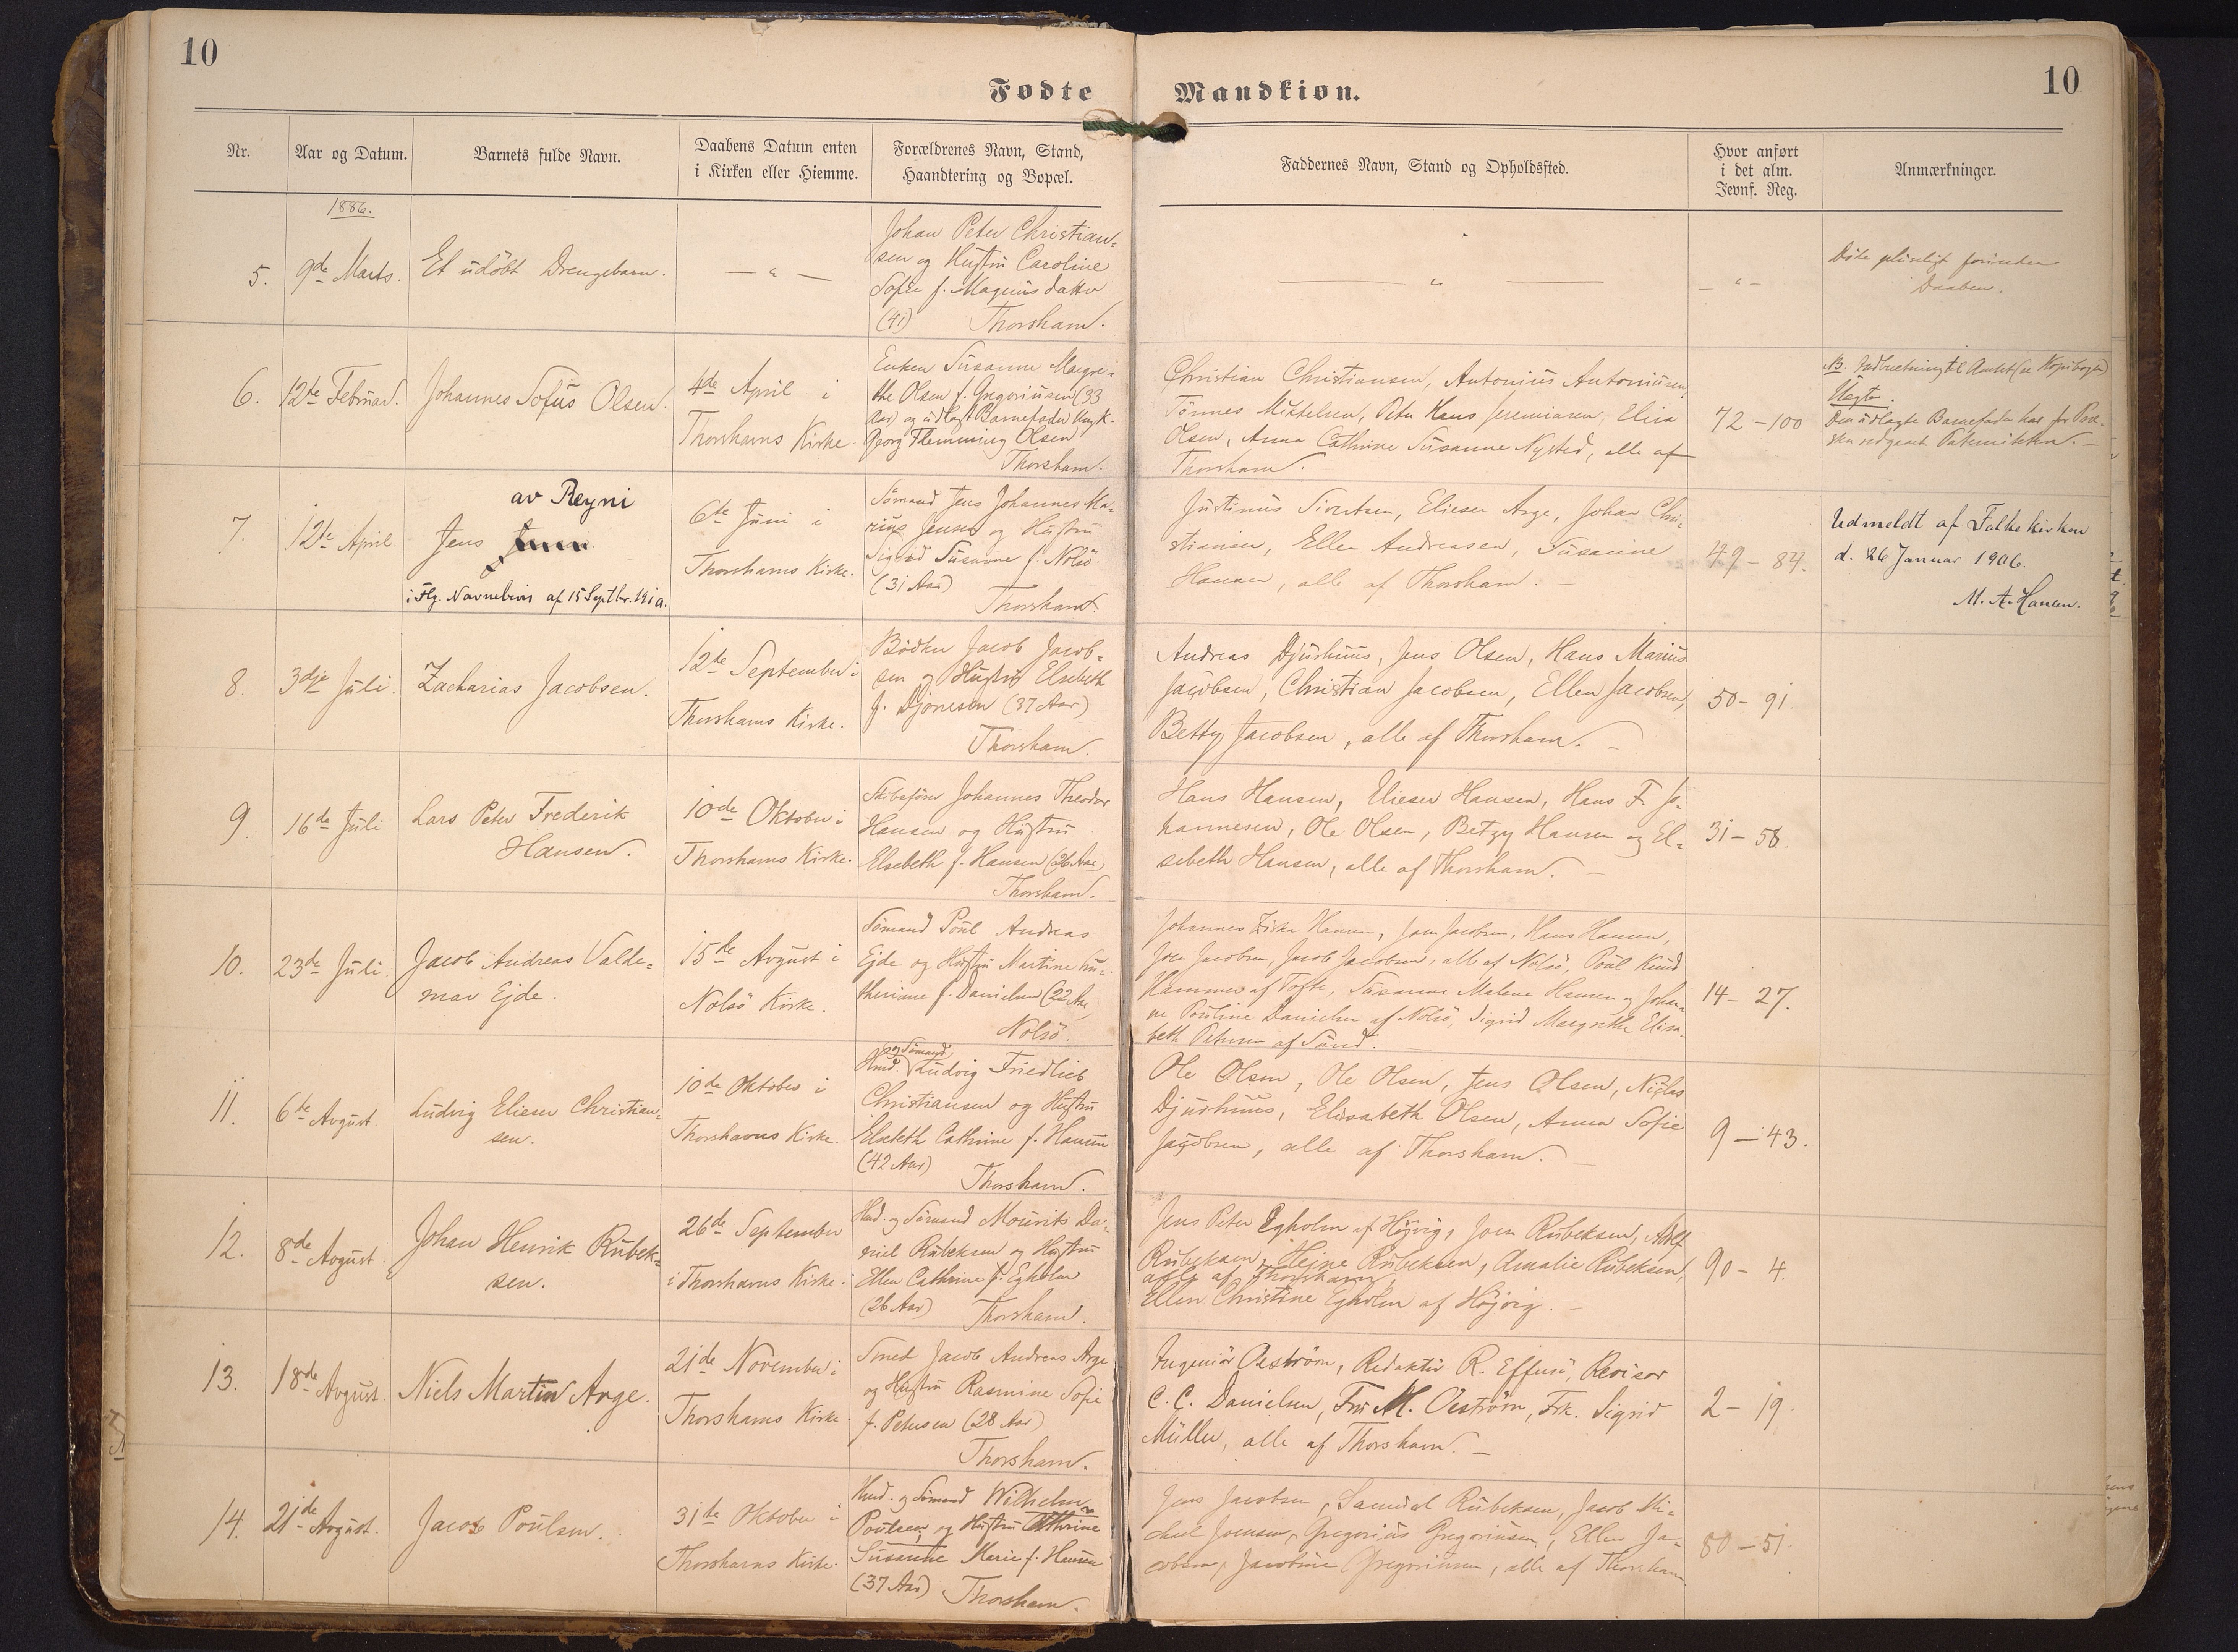 10
10
Fødte
Mandkiøn.
Nr.
Aar og Datum.
Barnets fulde Navn.
Daabens Datum enten
i Kirken eller Hiemme.
Forældrenes Navn, Stand,
Haandtering og Bopæl.
Faddernes Navn, Stand og Opholdssted.
Hvor anført
i det alm.
Jevnf. Reg.
Anmærkninger.
1886.
5.
9de Marts.
Et udöbt Drengebarn.
— " —
Johan Peter Christian-
sen og Hustru Caroline
Sofie f. Magnusdatter
(41) Thorshavn.
— " —
— " —
Döde pludseligt forinden
Daaben.
6.
12te Februar.
Johannes Sofus Olsen.
4de April i
Thorshavns Kirke.
Enken Susanne Margre-
the Olsen f. Gregoriusen (33
Aar) og udlagt Barnefader Ungk.
Georg Flemming Olsen
Thorshavn.
Christian Christiansen, Antonius Antoniusen,
Tönnes Mikkelsen, Peter Hans Jeremiasen, Elisa
Olsen, Anna Cathrine Susanne Nysted, alle af
Thorshavn.
72 - 100
NB. Indberetning til Amtet (se Kopibogen)
Uægte.
Den udlagte Barnefader har for Præ-
sten vedgaaet Paterniteten. —
7.
12te April.
av Reyni
Jens
i Flg. Navnebevis af 15 Septbr.
6te Juni i
Thorshavns Kirke.
Sömand Jens Johannes Ma-
rius Jensen og Hustru
Sigrid Susanne f. Nolsö
(31 Aar)
Thorshavn.
Justinus Sivertsen, Elieser Arge, Johan Chri-
stiansen, Ellen Andreasen, Susanne
Hansen, alle af Thorshavn. —
49 - 84.
Udmeldt af Folkekirken
d. 26 Januar 1906.
M. A. Hansen.
8.
3dje Juli.
Zacharias Jacobsen.
12te September i
Thorshavns Kirke.
Bödker Jacob Jacob-
sen og Hustru Elsebeth
f. Djonesen (37 Aar)
Thorshavn.
Andreas Djurhuus, Jens Olsen, Hans Marius
Jacobsen, Christian Jacobsen, Ellen Jacobsen,
Betty Jacobsen, alle af Thorshavn. —
50 - 91.
9.
16de Juli
Lars Peter Frederik
Hansen.
10de Oktober i
Thorshavns Kirke.
Skibsförer Johannes Theodor
Hansen og Hustru
Elsebeth f. Hansen (26 Aar)
Thorshavn.
Hans Hansen, Elieser Hansen, Hans F. Jo-
hannesen, Ole Olsen, Betzy Hansen og El-
sebeth Hansen, alle af Thorshavn. —
31 - 58.
10.
23de Juli
Jacob Andreas Valde-
mar Ejde.
15de August i
Nolsö Kirke.
Sömand Poul Andreas
Ejde og Hustru Martine
f. Danielsen (22 Aar)
Nolsö.
Johannes Hansen, Joen Jacobsen, Hans Hansen,
Joen Jacobsen, Jacob Jacobsen, alle af Nolsö, Poul Knud
Hammer af Tofte, Susanne Malene Hansen og Johan-
ne Pouline Danielsen af Nolsö, Sigrid Margrethe Elisa-
beth Petersen af Sund.
14 - 27.
11.
6te August
Ludvig Elieser Christian-
sen.
10de Oktober i
Thorshavns Kirke.
og Sömand
Hmd. Ludvig Friedlieb
Christiansen og Hustru
Elsebeth Cathrine f. Hansen
(42 Aar)
Thorshavn.
Ole Olsen, Ole Olsen, Jens Olsen, Niclas
Djurhuus, Elisabeth Olsen, Anna Sofie
Jacobsen, alle af Thorshavn. —
9 - 43.
12.
8de August
Johan Henrik Rubek-
sen.
26de September
i Thorshavns Kirke.
Hmd. og Sömand Mourits Da-
niel Rubeksen og Hustru
Ellen Cathrine f. Egholm
(26 Aar) Thorshavn.
Jens Peter Egholm af Höjvig, Joen Rubeksen, Adolf
Rubeksen, Hejne Rubeksen, Amalie Rubeksen,
alle af Thorshavn,
Ellen Christine Egholm af Höjvig. —
90 - 4.
13.
18de August.
Niels Martin Arge.
21de November i
Thorshavns Kirke.
Smed Jacob Andreas Arge
og Hustru Rasmine Sofie
f. Petersen (28 Aar)
Thorshavn.
Ingeniör Oeström, Redaktör R. Effersö, Revisor
C. C. Danielsen, Fru M. Oeström, Frk. Sigrid
Müller, alle af Thorshavn. —
2 - 19.
14.
21de August.
Jacob Poulsen.
31te Oktober i
Thorshavns Kirke.
Hmd. og Sömand Wilhelm
Poulsen og Hustru Cathrine
Susanne Marie f. Hansen
(37 Aar) Thorshavn.
Jens Jacobsen, Samuel Rubeksen, Jacob Mi-
chael Joensen, Gregorius Gregoriusen, Ellen Ja-
cobsen, Jacobine Gregoriusen, alle af Thorshavn.
80 - 51.